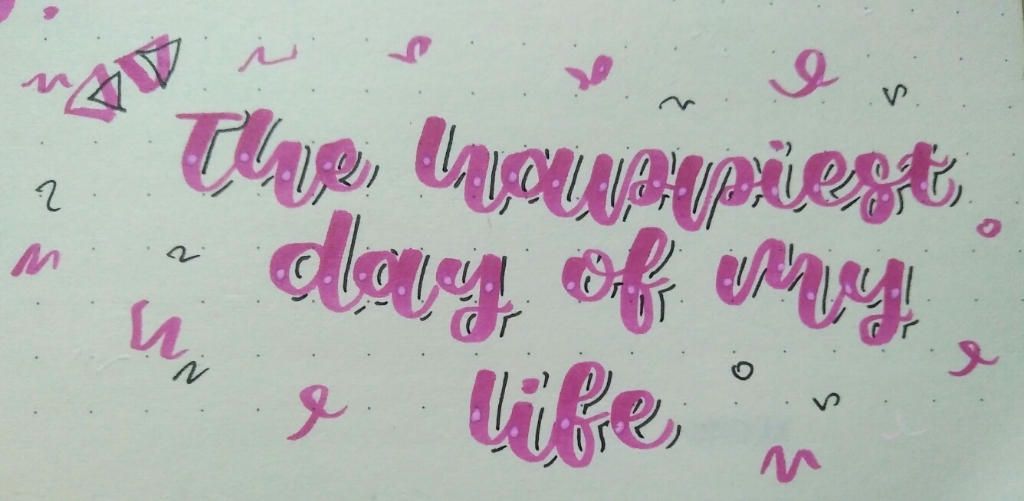 The happiest
day of my
life